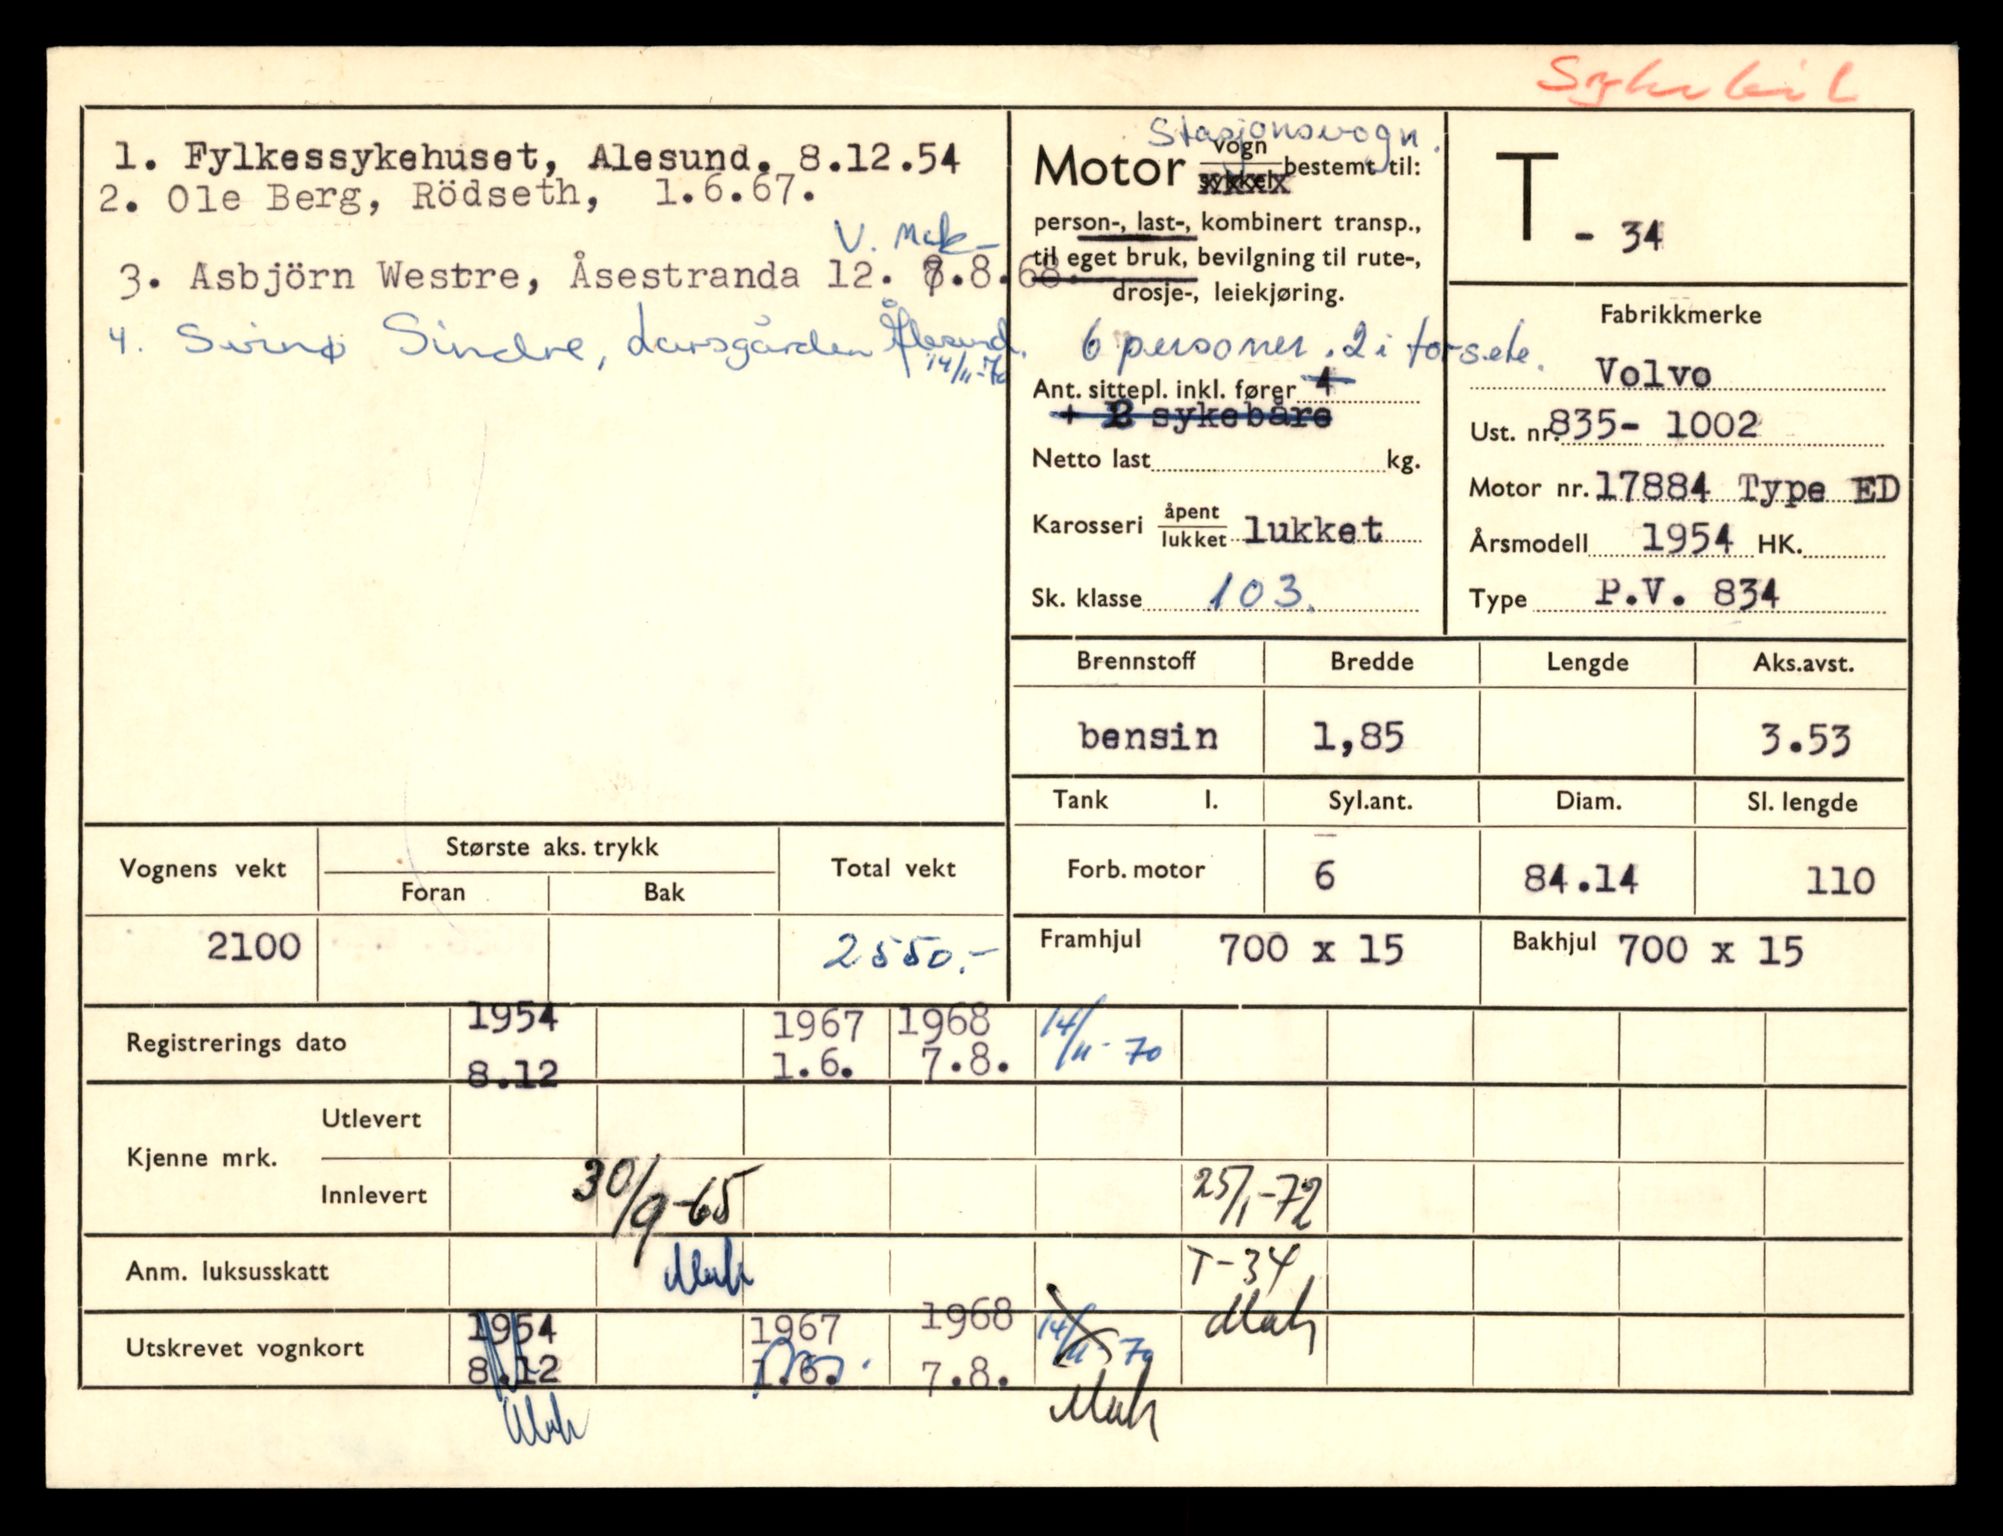 Sykebil
1. Fylkessykehuset, Alesund. 8.12.54
2. Ole Berg, Rödseth, 1.6.67.
V. Mak-
3. Asbjörn Westre, Åsestranda 12. 7.8.68.
4. Svinø Sindre, Larsgården Ålesund.
14/11-70
Stasjonsvogn.
Motor vogn sykkel bestemt til:
person-, last-, kombinert transp.,
til eget bruk, bevilgning til rute-,
drosje-, leiekjøring.
6 personer. 2 i forsete.
Ant. sittepl. inkl. fører 4
+ 2 sykebåre
Netto last kg.
Karosseri åpent lukket lukket
Sk. klasse 103.
T - 34
Fabrikkmerke
Volvo
Ust. nr. 835- 1002
Motor nr. 17884 Type ED
Årsmodell 1954 HK.
Type P.V. 834
Brennstoff Bredde Lengde Aks.avst.
bensin 1,85 3.53
Tank l. Syl.ant. Diam. Sl. lengde
Forb. motor 6 84.14 110
Framhjul 700 x 15 Bakhjul 700 x 15
Vognens vekt Største aks. trykk Total vekt
Foran Bak
2100 2550.-
Registrerings dato 1954 8.12 1967 1.6. 1968 7.8. 14/11-70
Kjenne mrk. Utlevert
Innlevert 30/9-65 25/1-72
Anm. luksusskatt Mah T-34
Mah
Utskrevet vognkort 1954 8.12 1967 1.6. 1968 7.8. 14/11-70
Mah Mah